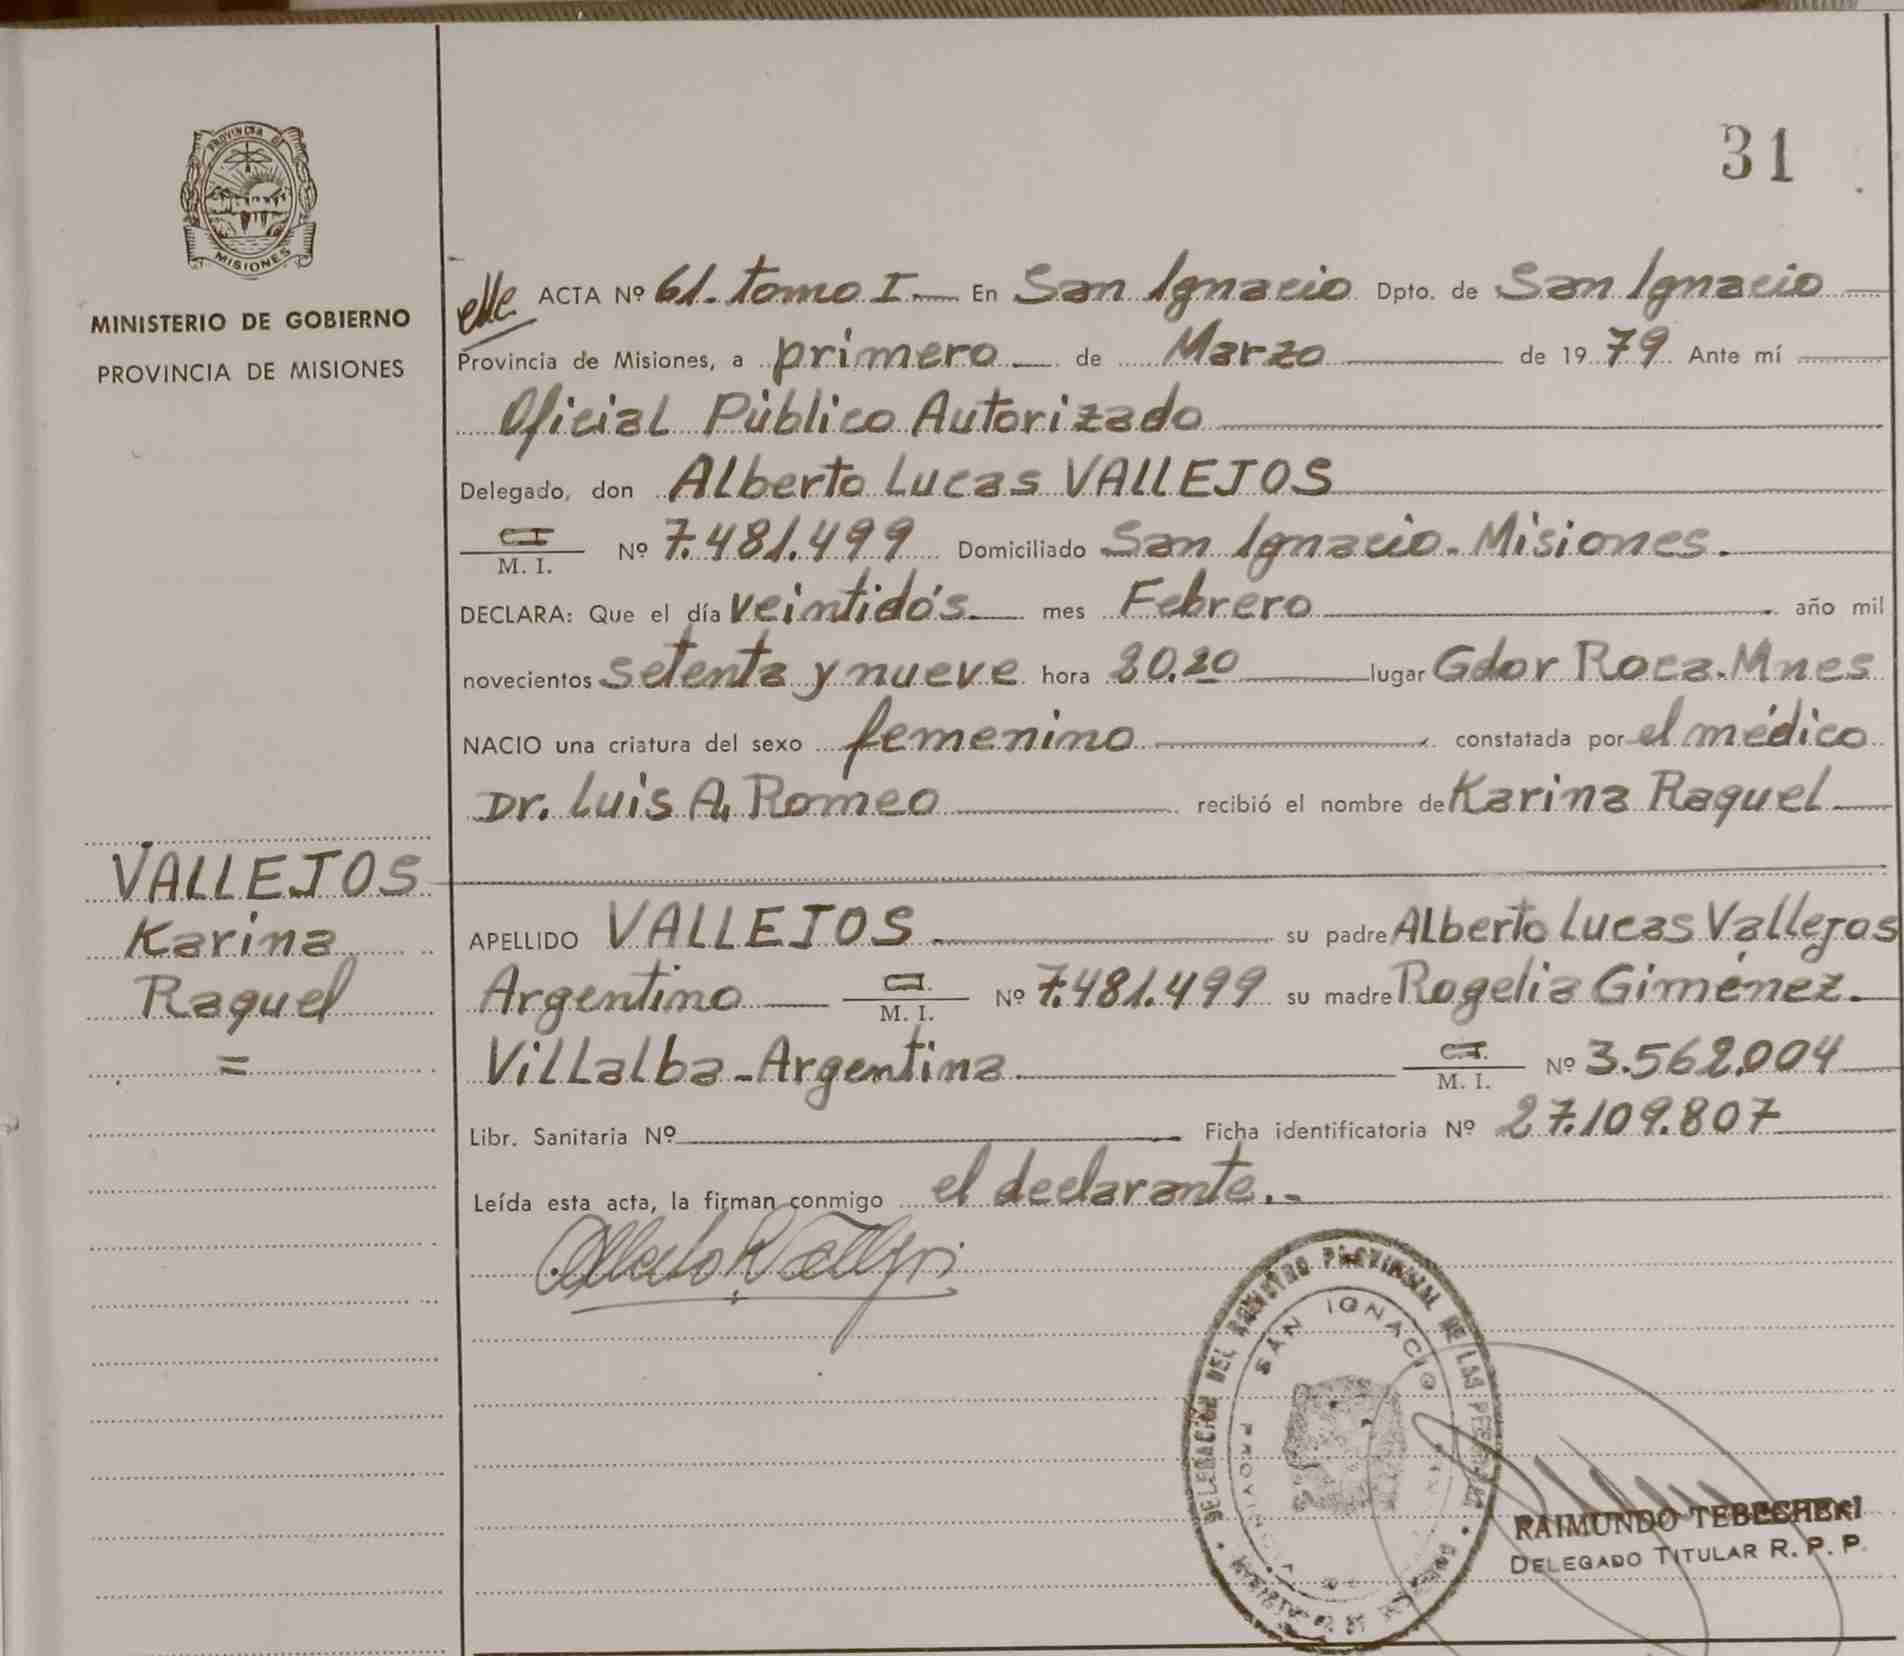 PROVINCIA DE
MISIONES
MINISTERIO DE GOBIERNO
PROVINCIA DE MISIONES
VALLEJOS
Karina
Raquel
=
31
ACTA Nº 61. tomo I. En San Ignacio Dpto. de San Ignacio
Provincia de Misiones, a primero de Marzo de 1979 Ante mí
Oficial Público Autorizado
Delegado, don Alberto Lucas VALLEJOS
C I
M. I. Nº 7.481.499 Domiciliado San Ignacio. Misiones.
DECLARA: Que el día veintidós mes Febrero año mil
novecientos setenta y nueve hora 20.20 lugar Gdor Roca. Mnes
NACIO una criatura del sexo femenino constatada por el médico
Dr. Luis A. Romeo recibió el nombre de Karina Raquel
APELLIDO VALLEJOS su padre Alberto Lucas Vallejos
Argentino C I. M. I. Nº 7.481.499 su madre Rogelia Giménez.
Villalba - Argentina C. I. M. I. Nº 3.562.004
Libr. Sanitaria Nº Ficha identificatoria Nº 27.109.807
Leída esta acta, la firman conmigo el declarante.-
DELEGACIÓN DEL REGISTRO PROVINCIAL DE LAS PERSONAS
SAN IGNACIO
RAIMUNDO TEBECHERI
DELEGADO TITULAR R. P. P.